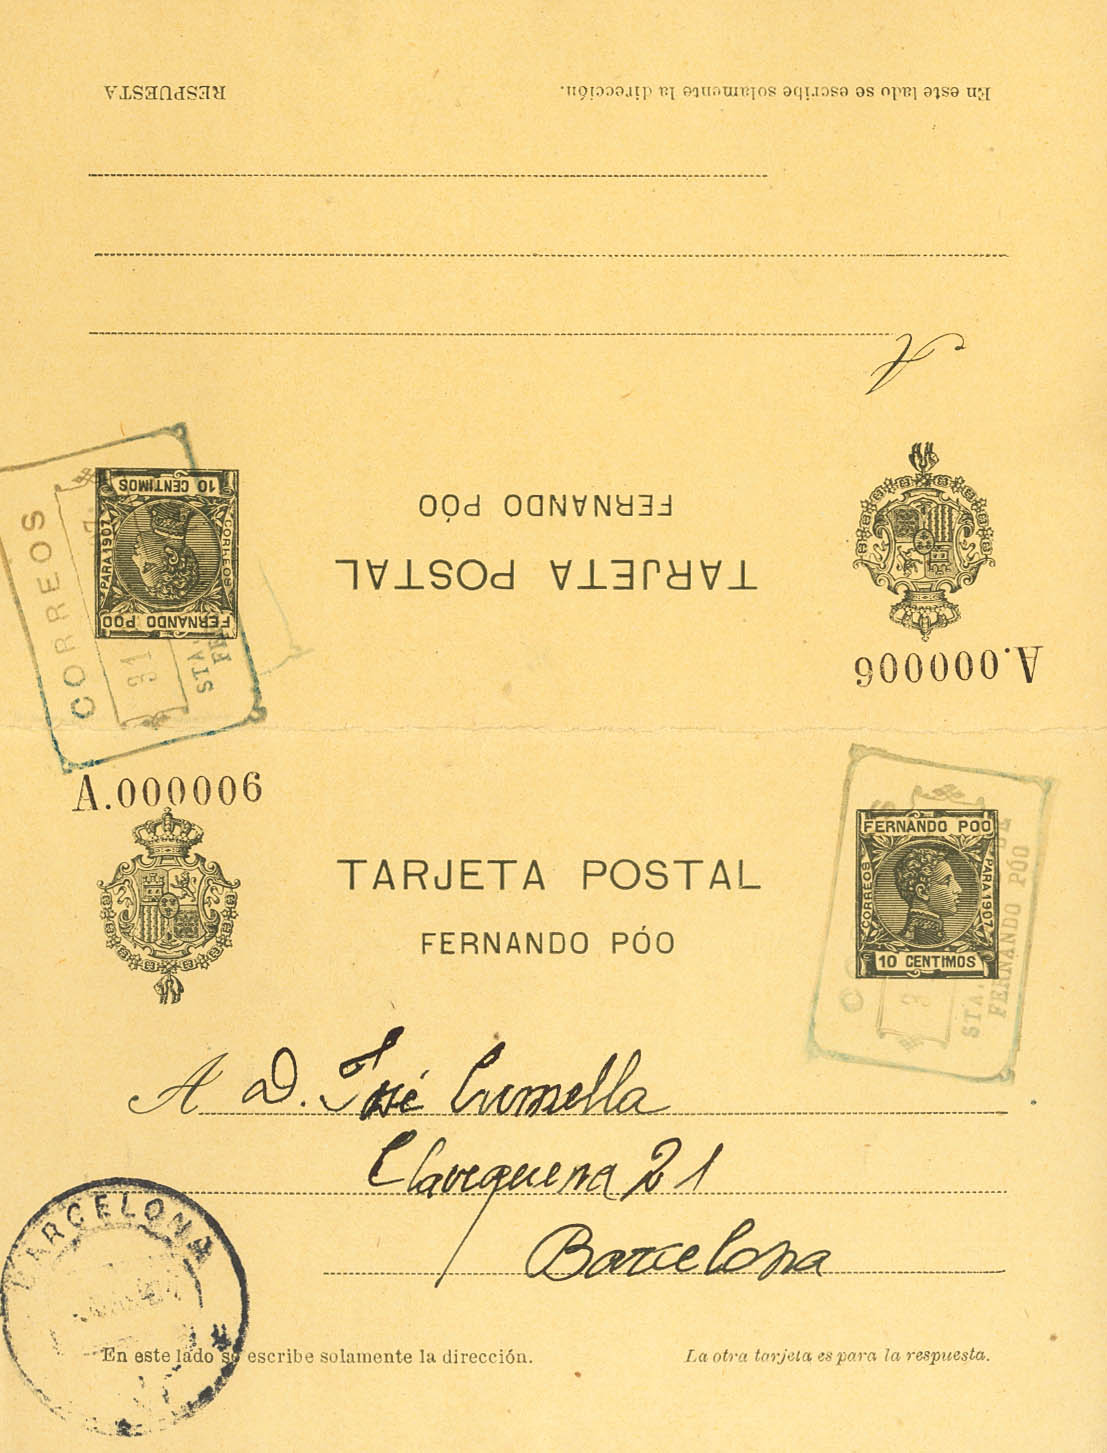 RESPUESTA
En este lado se escribe solamente la dirección.
A
TARJETA POSTAL
FERNANDO PÓO
A.000006
FERNANDO POO
CORREOS
PARA 1907
10 CENTIMOS
CORREOS
31
STA.
FE
A.000006
TARJETA POSTAL
FERNANDO PÓO
FERNANDO POO
CORREOS
PARA 1907
10 CENTIMOS
STA.
FERNANDO PÓO
A D. José Cumella
21
Barcelona
BARCELONA
En este lado se escribe solamente la dirección.
La otra tarjeta es para la respuesta.